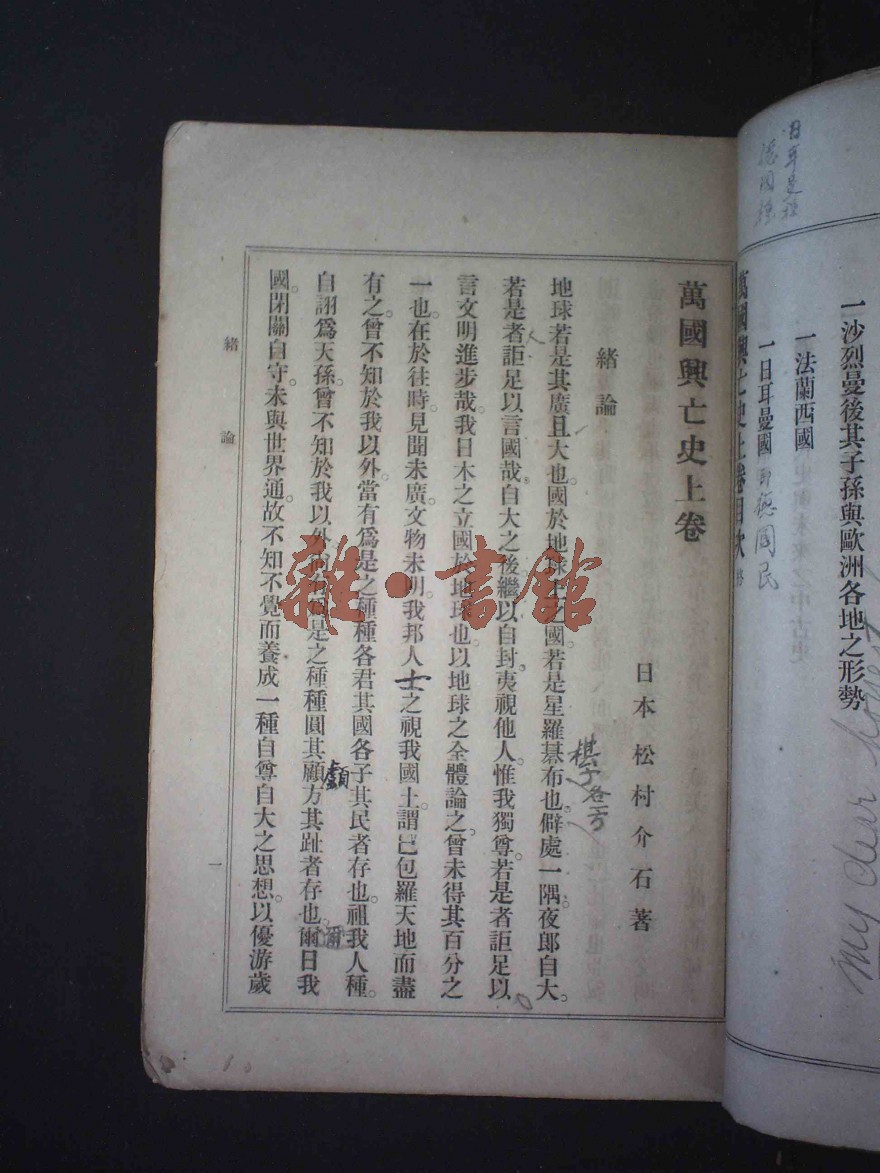 日耳曼種
德國種
一沙烈曼後其子孫與歐洲各地之形勢
一法蘭西國
一日耳曼國
萬國興亡史上卷目次 終
my dear
萬國興亡史上卷
日本 松村介石著
緒論
地球若是其廣且大也。國於地球上之國。若是星羅棊布也。僻處一隅夜郎自大。
棋子
若是者詎足以言國哉。自大之後繼以自封。夷視他人。惟我獨尊。若是者詎足以
言文明進步哉。我日本之立國於地球也。以地球之全體論之。曾未得其百分之
一也。在於往時。見聞未廣。文物未明。我邦人士之視我國土。謂已包羅天地而盡
有之。曾不知於我以外。當有爲是之種種各君其國各子其民者存也。祖我人種。
自詡爲天孫。曾不知於我以外尚有如是之種種圓其顱方其趾者存也。爾日我
顱
爾
國。閉關自守。未與世界通。故不知不覺而養成一種自尊自大之思想。以優游歲
緒論
一
雜·書館